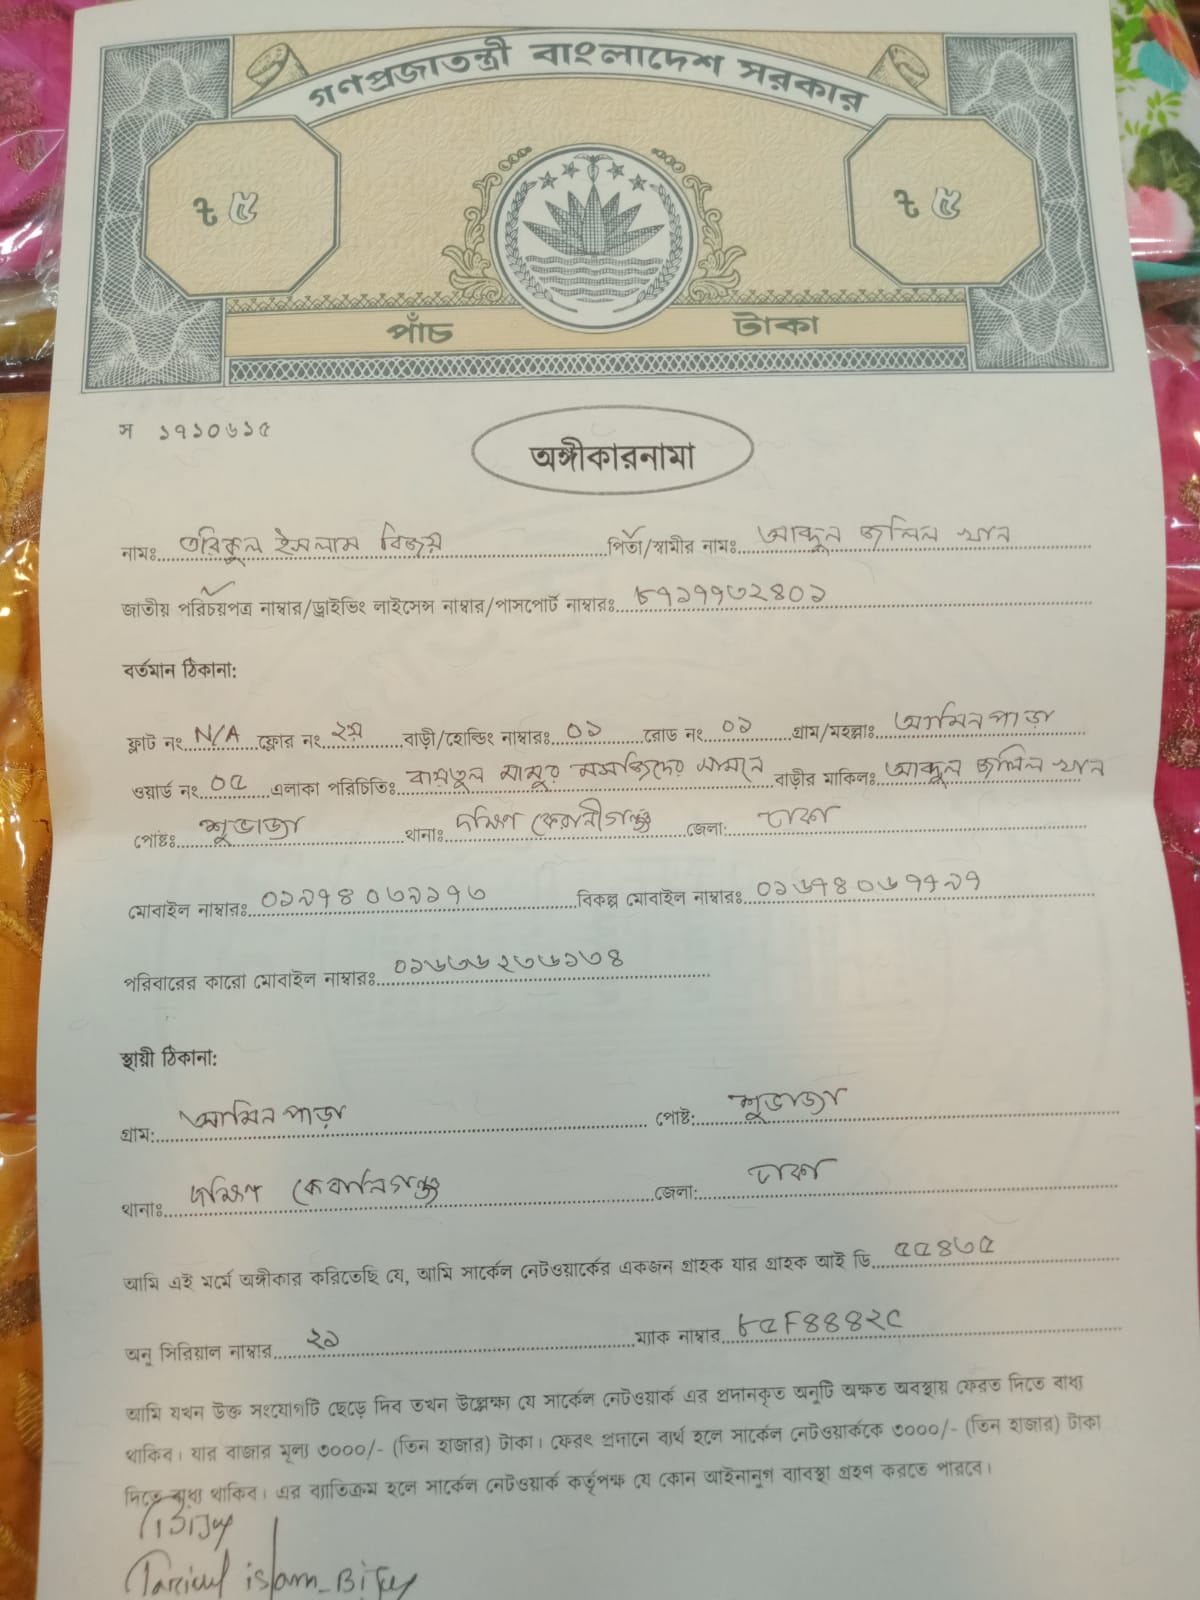 গণপ্রজাতন্ত্রী বাংলাদেশ সরকার
৳ ৫ ৳ ৫
পাঁচ টাকা
স ১৭১০৬১৫
অঙ্গীকারনামা
নামঃ তরিকুল ইসলাম বিজয় পিতা/স্বামীর নামঃ আব্দুল জলিল খান
জাতীয় পরিচয়পত্র নাম্বার/ড্রাইভিং লাইসেন্স নাম্বার/পাসপোর্ট নাম্বারঃ ৮৭১৭৭৩২৪০১
বর্তমান ঠিকানা:
ফ্লাট নং N/A ফ্লোর নং ২য় বাড়ী/হোল্ডিং নাম্বারঃ ০১ রোড নং ০১ গ্রাম/মহল্লাঃ আমিন পাড়া
ওয়ার্ড নং ০৫ এলাকা পরিচিতিঃ বায়তুল মামুর মসজিদের সামনে বাড়ীর মাকিলঃ আব্দুল জলিল খান
পোষ্টঃ শুভাড্যা থানাঃ দক্ষিণ কেরানীগঞ্জ জেলা: ঢাকা
মোবাইল নাম্বারঃ ০১৯৭৪০৩৯১৭৩ বিকল্প মোবাইল নাম্বারঃ ০১৬৭৪০৬৭৭৯৭
পরিবারের কারো মোবাইল নাম্বারঃ ০১৬৩৬২৩৬১৩৪
স্থায়ী ঠিকানা:
গ্রাম: আমিন পাড়া পোষ্ট: শুভাড্যা
থানাঃ দক্ষিণ কেরানিগঞ্জ জেলা: ঢাকা
আমি এই মর্মে অঙ্গীকার করিতেছি যে, আমি সার্কেল নেটওয়ার্কের একজন গ্রাহক যার গ্রাহক আই ডি ৫৫৪৩৫
অনু সিরিয়াল নাম্বার ২১ ম্যাক নাম্বার ৮৫F৪৪৪২C
আমি যখন উক্ত সংযোগটি ছেড়ে দিব তখন উল্লেক্ষ্য যে সার্কেল নেটওয়ার্ক এর প্রদানকৃত অনুটি অক্ষত অবস্থায় ফেরত দিতে বাধ্য
থাকিব। যার বাজার মূল্য ৩০০০/- (তিন হাজার) টাকা। ফেরৎ প্রদানে ব্যর্থ হলে সার্কেল নেটওয়ার্ককে ৩০০০/- (তিন হাজার) টাকা
দিতে বাধ্য থাকিব। এর ব্যাতিক্রম হলে সার্কেল নেটওয়ার্ক কর্তৃপক্ষ যে কোন আইনানুগ ব্যাবস্থা গ্রহণ করতে পারবে।
Bijoy
Taricul islam_Bijoy